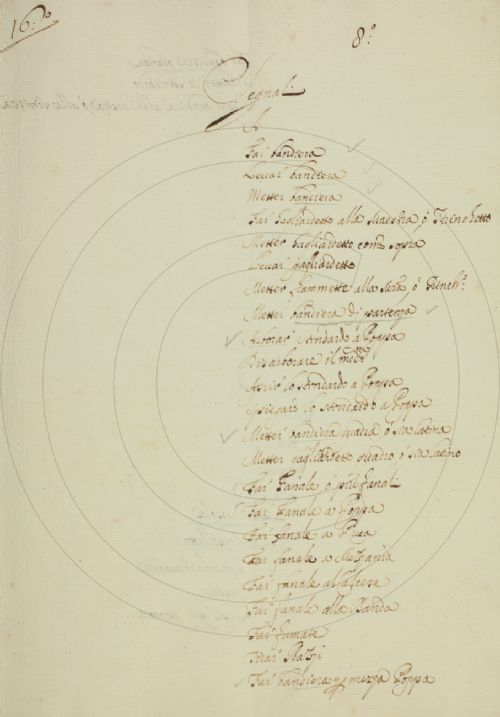 16.º
8.º
Segnali
A
Far bandiera
Levar bandiera
Metter bandiera
Far gagliardetto alla Maestra, ó Trinchetto
Metter gagliardetto come sopra
Levar gagliardetto
Metter fiammette alla Mra, ó Trinch.º
Metter bandiera di partenza
Arborar stendardo á Poppa
Disarborare il medmo
Aprir lo stendardo a Poppa
Spiegare lo stendardo a Poppa
Metter bandiera quadra, ó sia latina
Metter gagliardetto quadro ó sia latino
Far Fanale o più fanali
Far Fanale á Poppa
Far fanale a Prua
Far fanale a Mezzania
Far fanale al Calcese
Far fanale alla Banda
Far fumate
Tirar
Far bandiera mezza Poppa